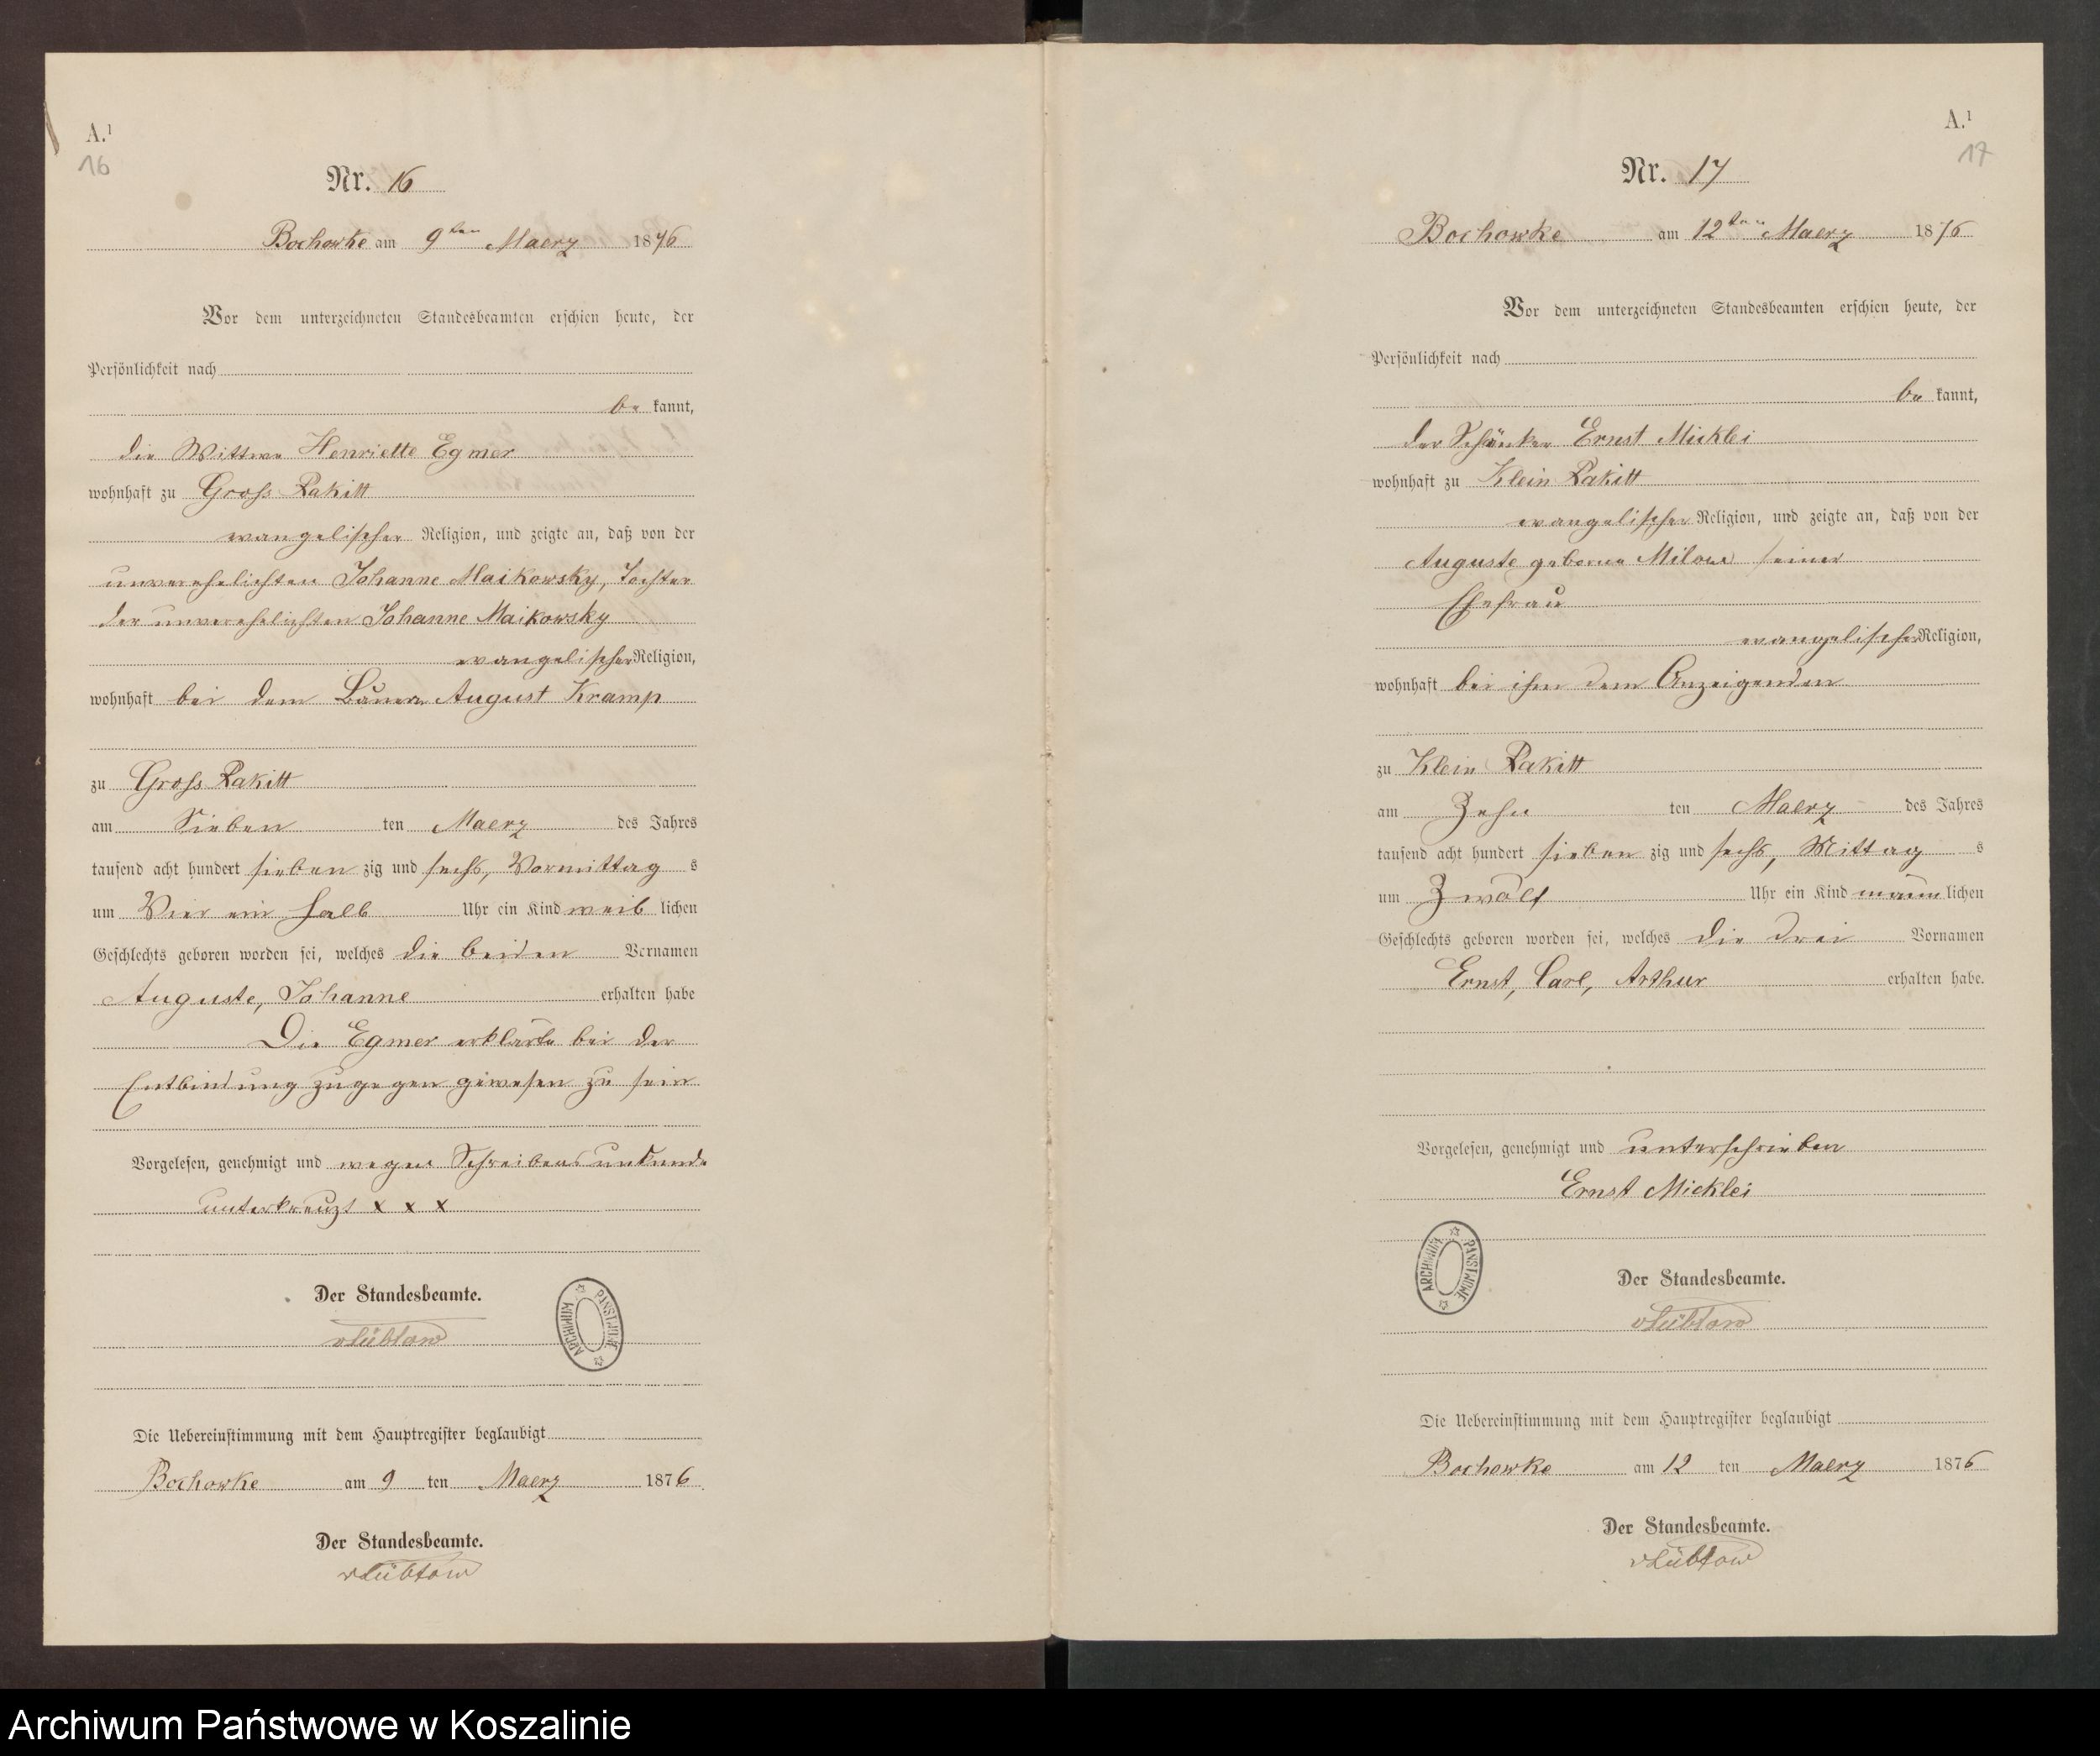 A.¹
16
Nr. 16
Bochowke am 9ten Maerz 1876
Vor dem unterzeichneten Standesbeamten erschien heute, der
Persönlichkeit nach
be kannt,
die Wittwe Henriette Egmer
wohnhaft zu Gross Rakitt
evangelischer Religion, und zeigte an, daß von der
unverehelichten Johanne Maikowsky, Tochter
der unverehelichten Johanne Maikowsky
evangelischer Religion,
wohnhaft bei dem Bauern August Kramp
zu Gross Rakitt
am Sieben ten Maerz des Jahres
tausend acht hundert sieben zig und sechs, Vormittag s
um Vier ein halb Uhr ein Kind weib lichen
Geschlechts geboren worden sei, welches die beiden Vornamen
Auguste, Johanne erhalten habe
Die Egmer erklärte bei der
Entbindung zugegen gewesen zu sein
Vorgelesen, genehmigt und wegen Schreibensunkunde
unterkreuzt x x x
Der Standesbeamte.
vLübtow
ARCHIWUM PAŃSTWOWE
Die Uebereinstimmung mit dem Hauptregister beglaubigt
Bochowke am 9 ten Maerz 1876
Der Standesbeamte.
vLübtow
A.¹
17
Nr. 17
Bochowke am 12ten Maerz 1876
Vor dem unterzeichneten Standesbeamten erschien heute, der
Persönlichkeit nach
be kannt,
der Schänker Ernst Micklei
wohnhaft zu Klein Rakitt
evangelischer Religion, und zeigte an, daß von der
Auguste geborne Milow seiner
Ehefrau
evangelischer Religion,
wohnhaft bei ihm dem Anzeigenden
zu Klein Rakitt
am Zehn ten Maerz des Jahres
tausend acht hundert sieben zig und sechs, Mittag s
um Zwölf Uhr ein Kind männ lichen
Geschlechts geboren worden sei, welches die drei Vornamen
Ernst, Carl, Arthur erhalten habe.
Vorgelesen, genehmigt und unterschrieben
Ernst Micklei
ARCHIWUM PAŃSTWOWE
Der Standesbeamte.
vLübtow
Die Uebereinstimmung mit dem Hauptregister beglaubigt
Bochowke am 12 ten Maerz 1876
Der Standesbeamte.
vLübtow
Archiwum Państwowe w Koszalinie